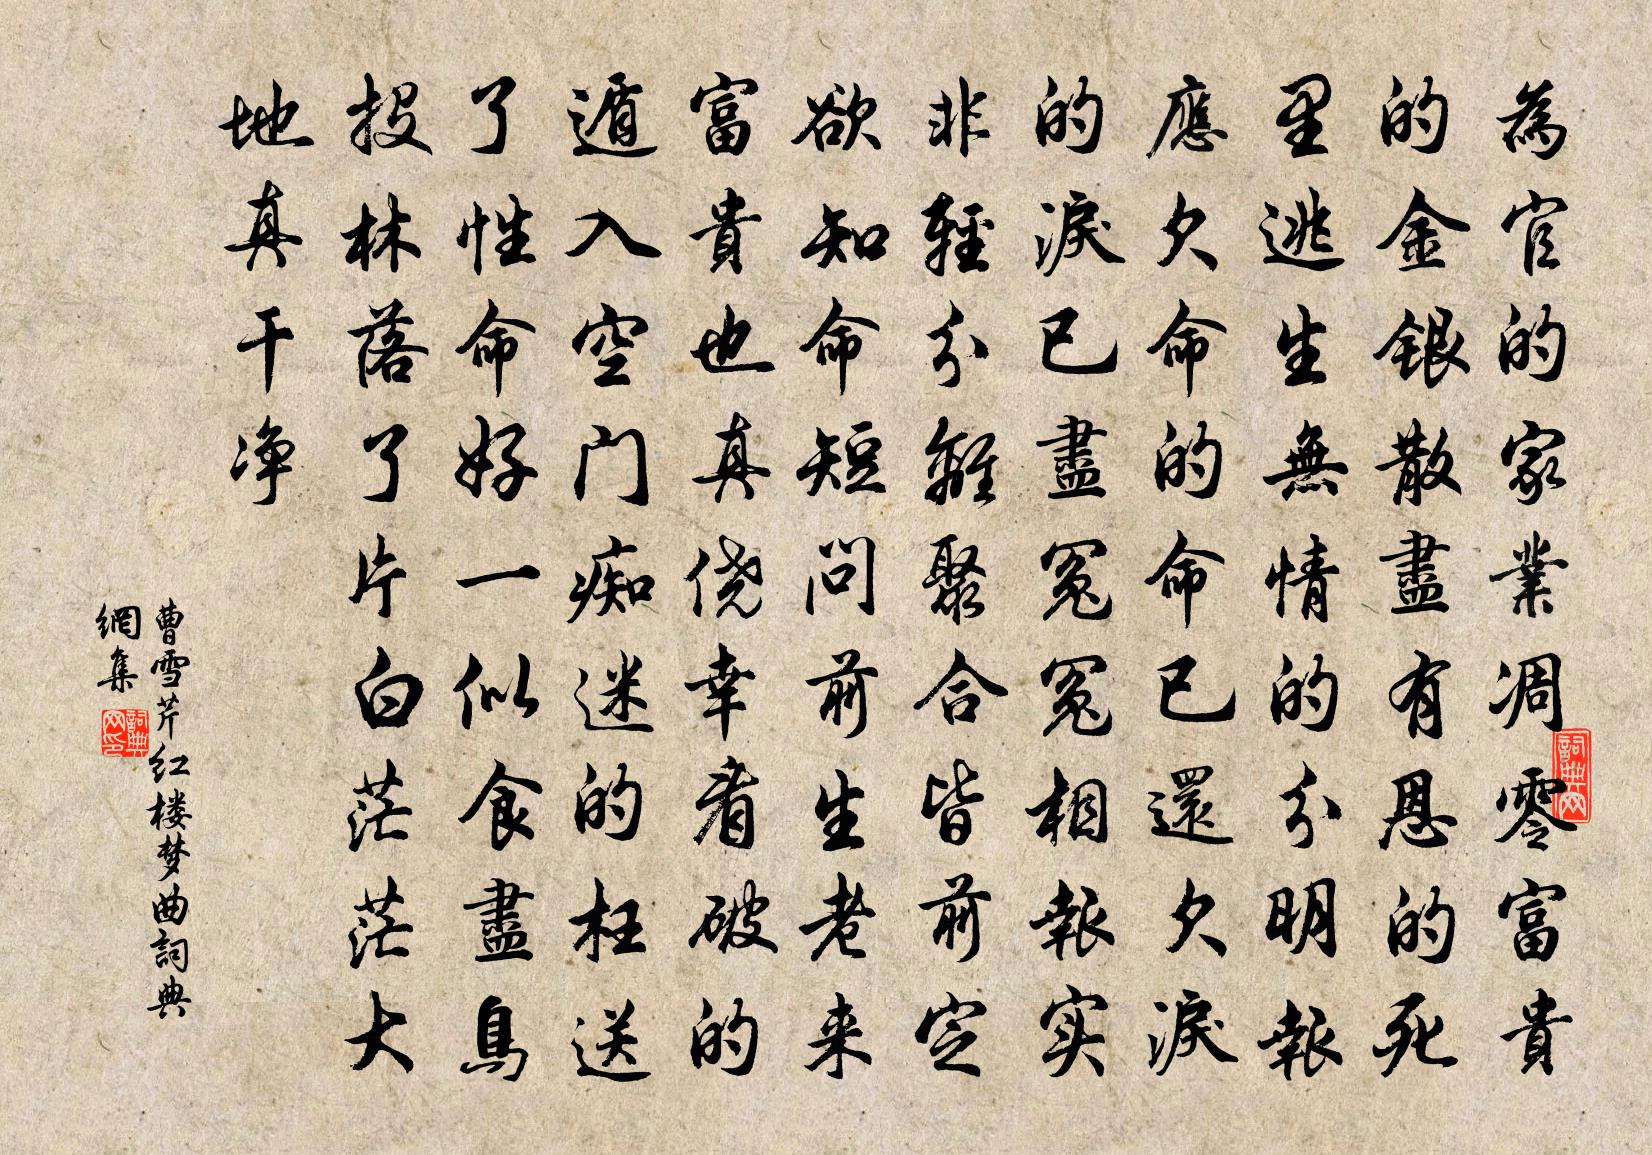 為官的家業凋零富貴
的金銀散盡有恩的死
里逃生無情的分明報
應欠命的命已還欠淚
的淚已盡冤冤相報实
非輕分離聚合皆前定
欲知命短問前生老来
富貴也真侥幸看破的
遁入空门痴迷的枉送
了性命好一似食盡鳥
投林落了片白茫茫大
地真干净
曹雪芹红楼梦曲詞典
網集
詞典网
詞典网印